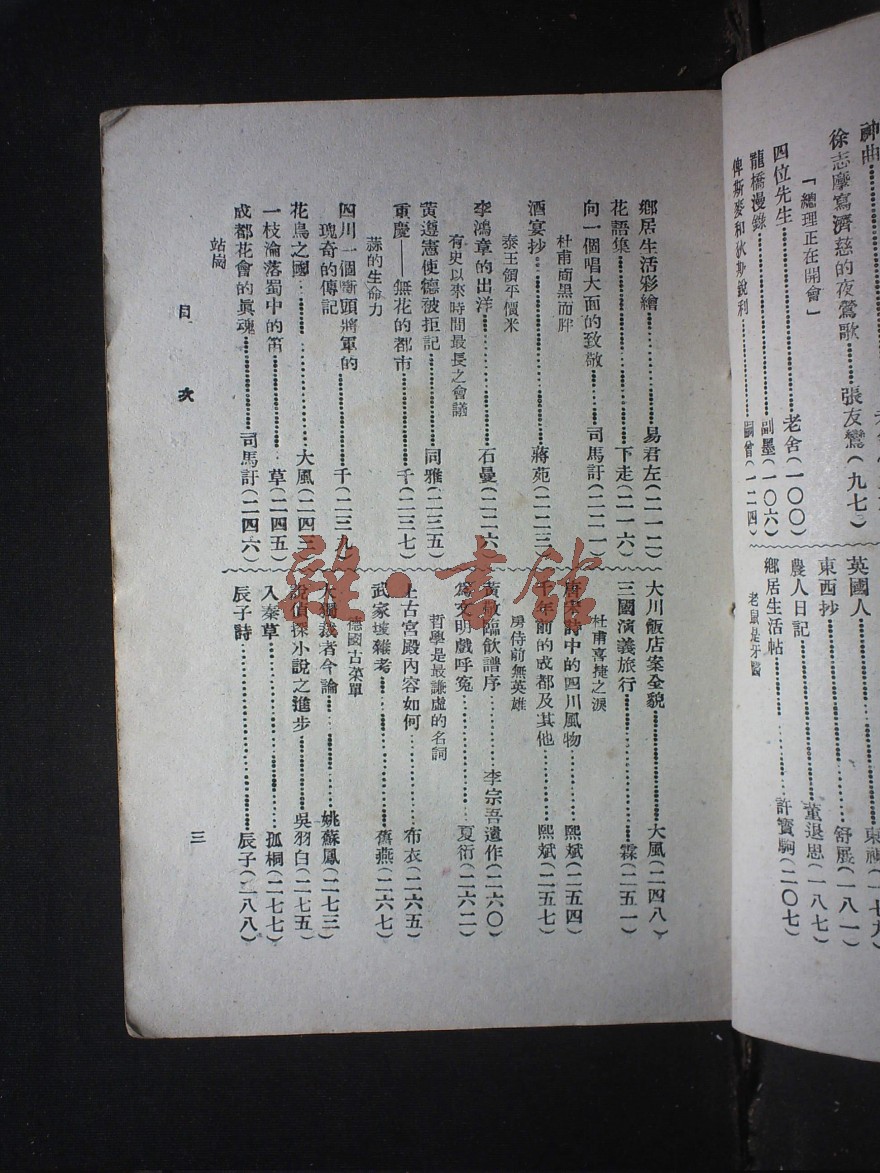 神曲
徐志摩寫濟慈的夜鶯歌 張友鸞(九七)
「總理正在開會」
四位先生 老舍(一〇〇)
龍橋漫錄 副墨(一〇六)
俾斯麥和狄斯銳利 嗣曾(一二四)
英國人
東西抄 舒展(一八一)
農人日記 董退思(一八七)
鄉居生活帖 許寶駒(二〇七)
老鼠是牙醫
鄉居生活彩繪 易君左(二一二)
花語集 下走(二一六)
向一個唱大面的致敬 司馬訏(二二一)
杜甫面黑而胖
酒宴抄 蔣苑(二二三)
泰王領平價米
李鴻章的出洋 石曼(二二六)
有史以來時間最長之會議
黃遵憲使德被拒記 同雅(二三五)
重慶——無花的都市 千(二三七)
蒜的生命力
四川一個斷頭將軍的
瑰奇的傳記 千(二三九)
花鳥之國 大風(二四三)
一枝淪落蜀中的笛 草(二四五)
成都花會的眞魂 司馬訏(二四六)
站崗
大川飯店案全貌 大風(二四八)
三國演義旅行 霖(二五一)
杜甫喜捷之淚
唐宋詩中的四川風物 熙斌(二五四)
千年前的成都及其他 熙斌(二五七)
房侍前無英雄
黃敬臨飲譜序 李宗吾遺作(二六〇)
爲文明戲呼冤 夏衍(二六二)
哲學是最謙虛的名詞
上古宮殿內容如何 布衣(二六五)
武家坡雜考 舊燕(二六七)
德國古菜單
大獨裁者今論 姚蘇鳳(二七三)
說偵探小說之進步 吳羽白(二七五)
入秦草 孤桐(二七七)
辰子詩 辰子(二八八)
目 次
三
雜·書館